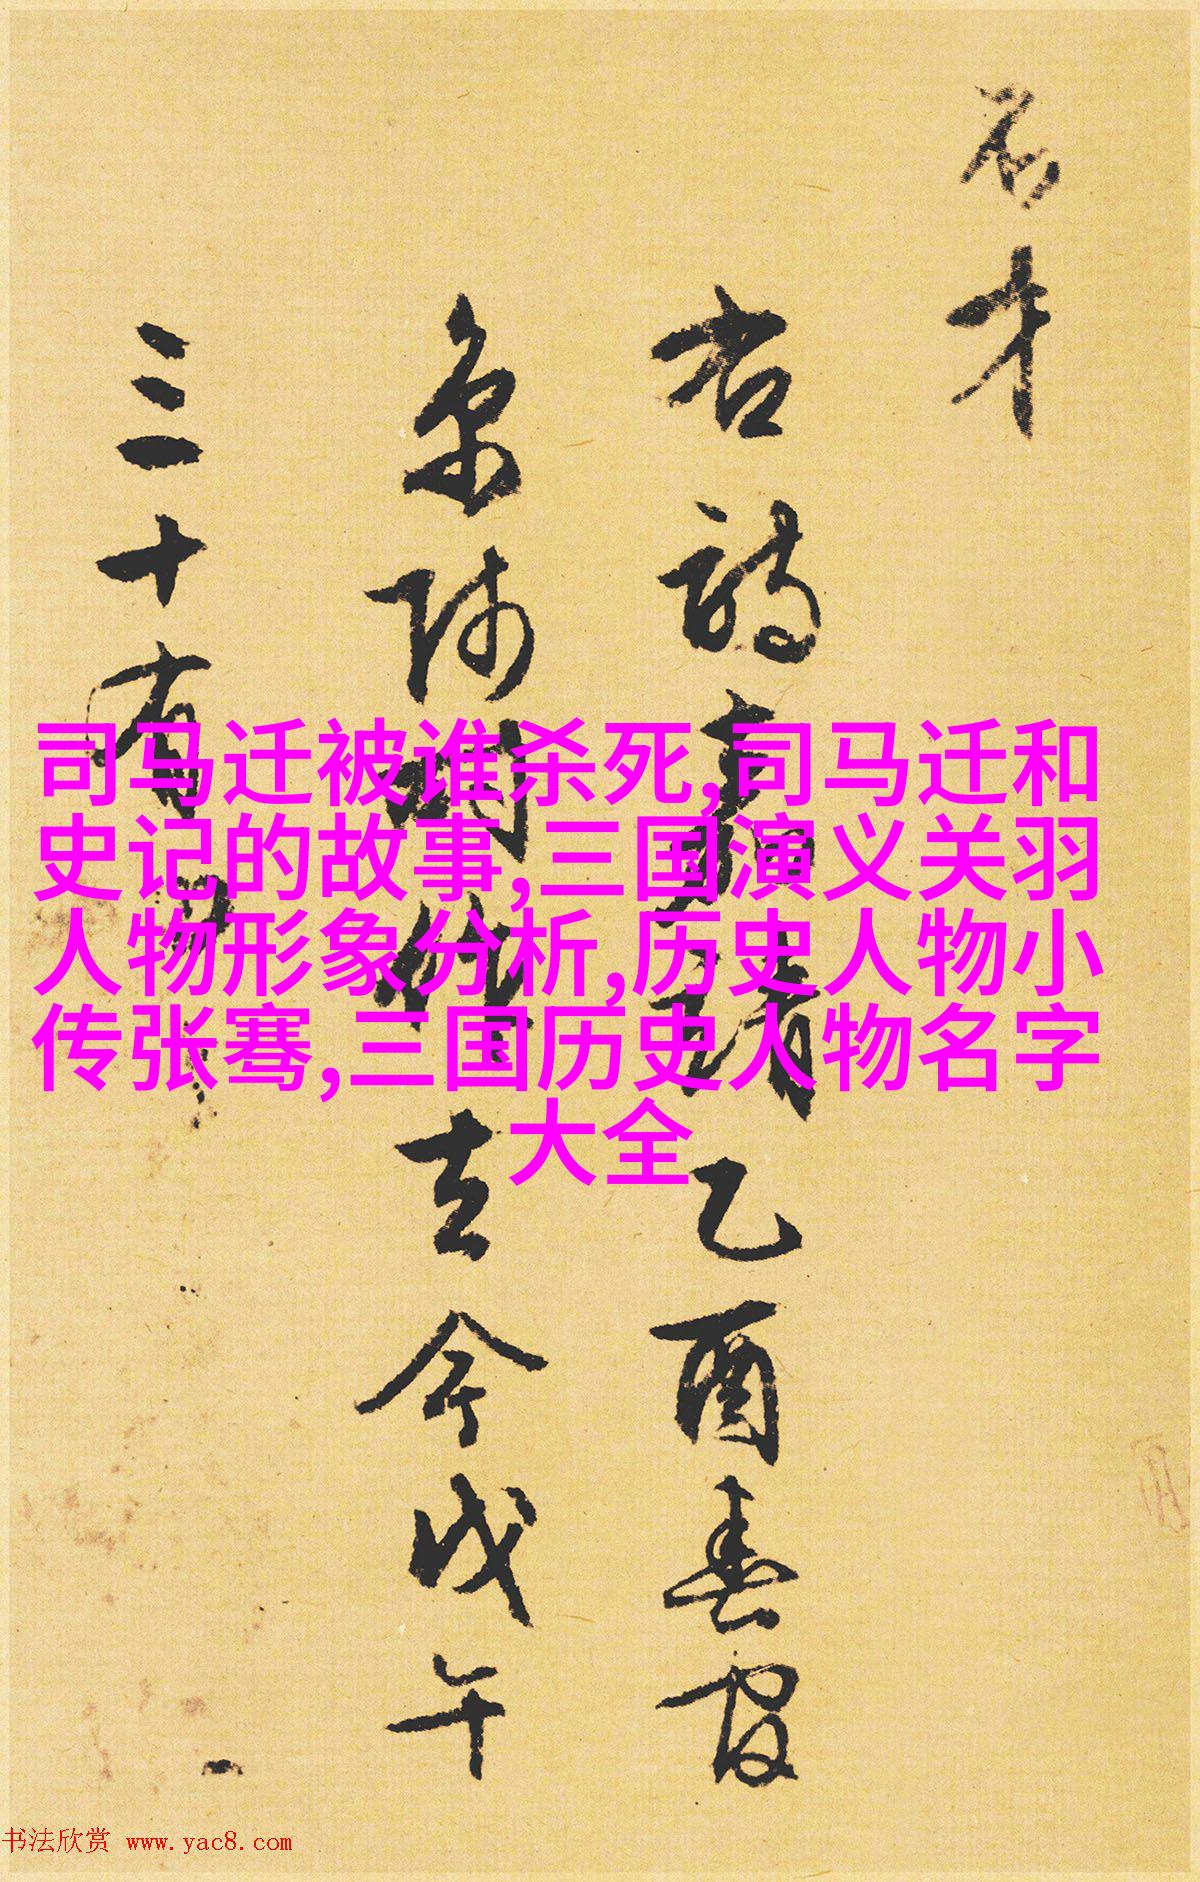 名才
右詩嘉靖乙酉春寓
京师时作去今戊午
三十有
司马迁被谁杀死,司马迁和
史记的故事,三国演义关羽
人物形象分析,历史人物小
传张骞,三国历史人物名字
大全
书法欣赏 www.yac8.com